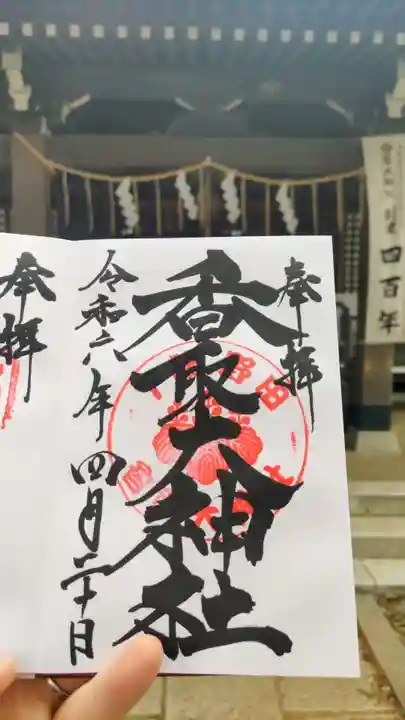 奉拝
香取大神社
令和六年四月二十日
奉拝
四百年